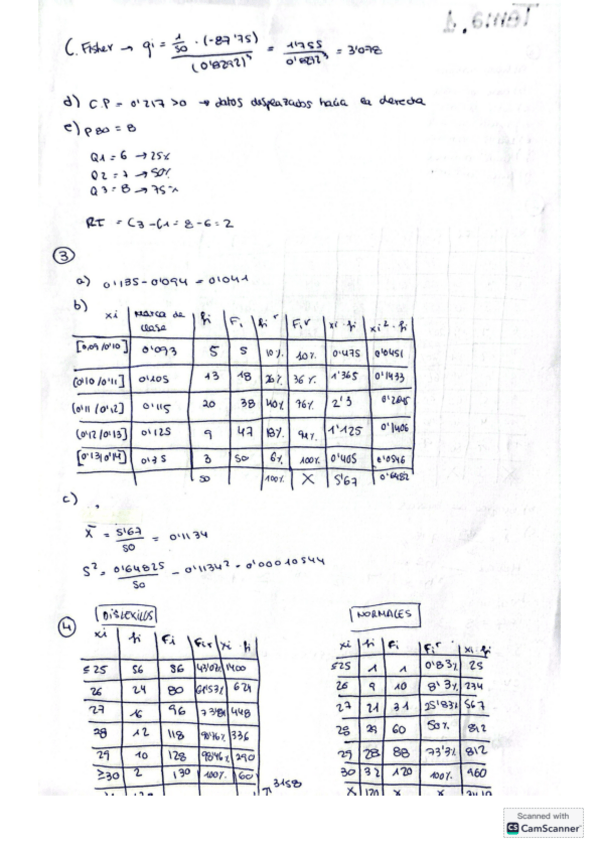 Tema 1.
C. Fisher → gi = 1/50 · (-87'75) / (0'8292)³ = 1'755 / 0'8292³ = 3'078
d) C.P = 0'217 >0 → datos desplazados hacia la derecha
e) P80 = 8
Q1 = 6 → 25%
Q2 = 7 → 50%
Q3 = 8 → 75%
RI = C3 - C1 = 8 - 6 = 2
③
a) 0'135 - 0'094 = 0'041
b)
xi | Marca de clase | fi | Fi | fi r | Fi r | xi · fi | xi² · fi
[0,09/0'10] | 0'095 | 5 | 5 | 10% | 10% | 0'475 | 0'0451
(0'10/0'11] | 0'105 | 13 | 18 | 26% | 36% | 1'365 | 0'1433
(0'11/0'12] | 0'115 | 20 | 38 | 40% | 76% | 2'3 | 0'2645
(0'12/0'13] | 0'125 | 9 | 47 | 18% | 94% | 1'125 | 0'1406
(0'13/0'14] | 0'135 | 3 | 50 | 6% | 100% | 0'405 | 0'0546
50 | 100% | X | 5'67 | 0'6482
c)
x̄ = 5'67 / 50 = 0'1134
S² = 0'64825 / 50 - 0'1134² = 0'00010544
④
DISLEXICOS
xi | fi | Fi | Fir | xi · fi
≤25 | 56 | 56 | 1400
26 | 24 | 80 | 624
27 | 16 | 96 | 448
28 | 12 | 118 | 336
29 | 10 | 128 | 98'46% | 290
≥30 | 2 | 130 | 100% | 60
3158
NORMALES
xi | fi | Fi | Fir | xi · fi
≤25 | 1 | 1 | 0'83% | 25
26 | 9 | 10 | 8'3% | 234
27 | 21 | 31 | 25'83% | 567
28 | 29 | 60 | 50% | 812
29 | 28 | 88 | 73'3% | 812
30 | 32 | 120 | 100% | 960
X | 120 | X | X
Scanned with
CS CamScanner